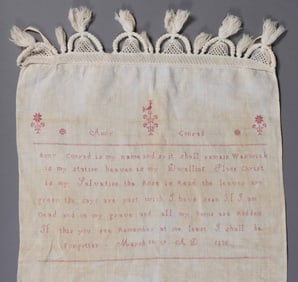 Anne Conrad
Anne Conrad is my name and so it shall remain Warwick
is my station heaven is my Dwelling Place Christ
is my Salvation the Rose is Read the leaves are
green the days are past wich I have sean If I am
Dead and in my grave and all my bons are Rodden
If this you see Remember me least I shall be
Forgotten March A D